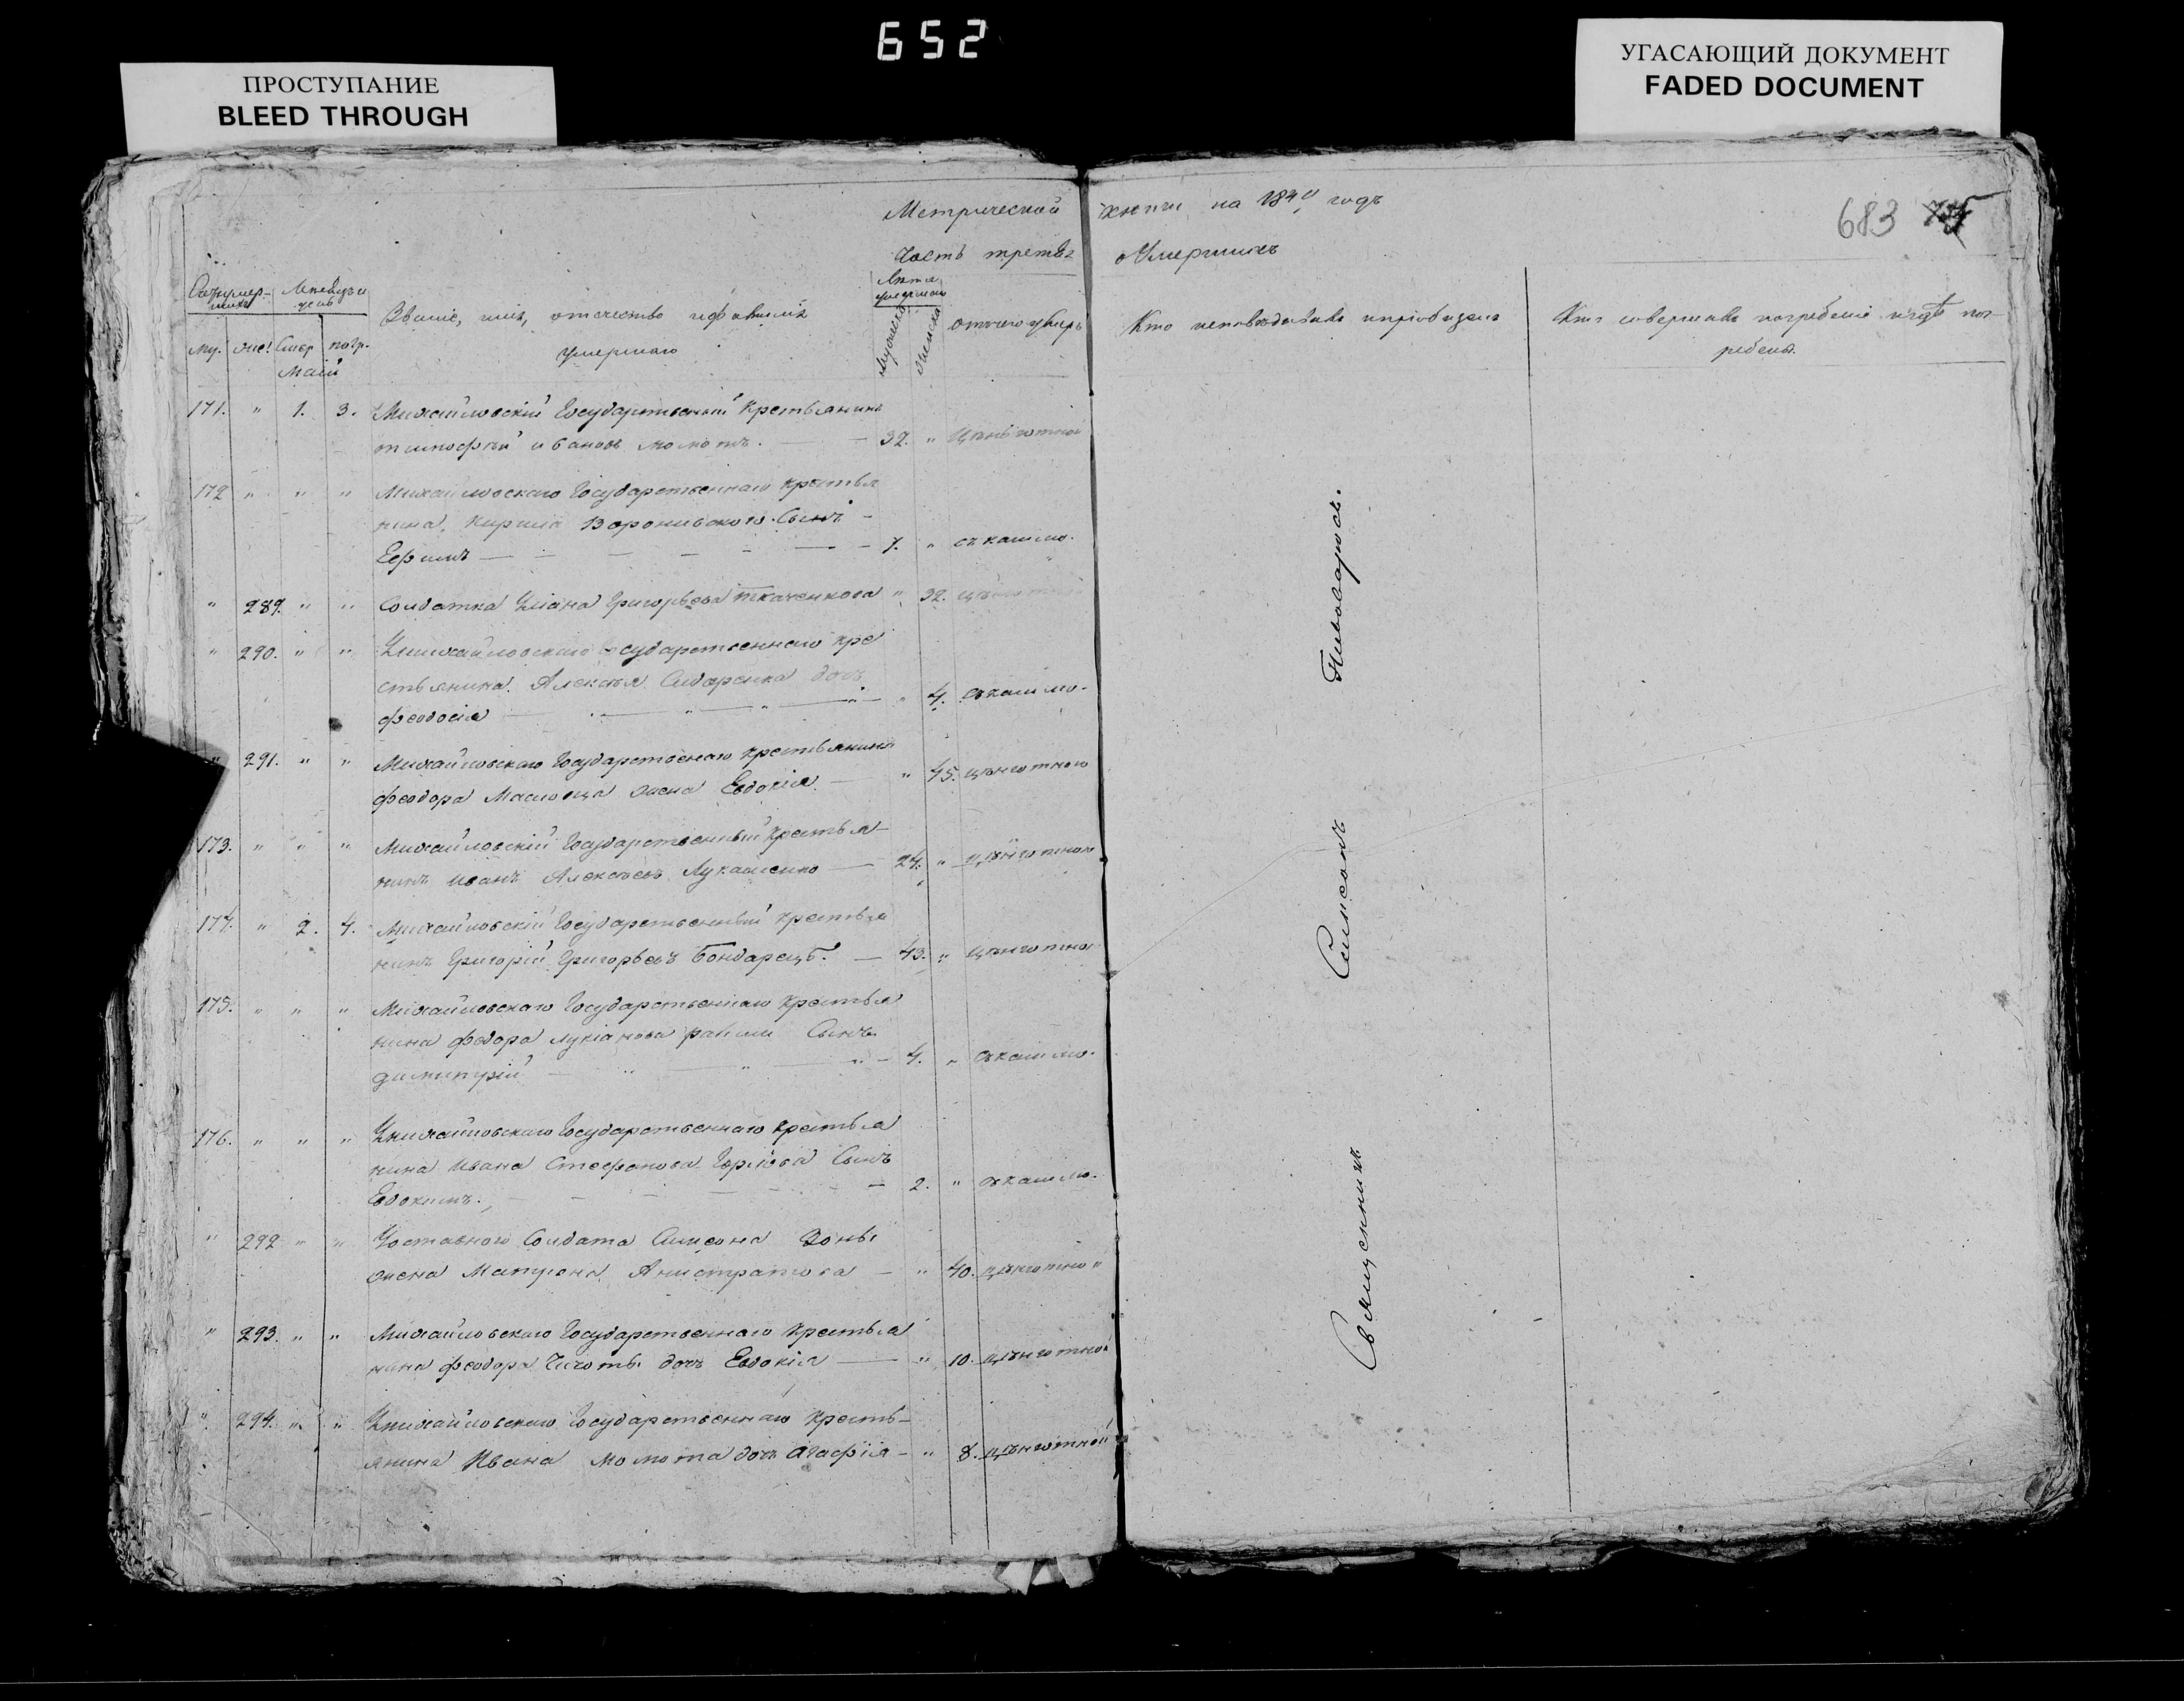 652
ПРОСТУПАНИЕ
BLEED THROUGH
УГАСАЮЩИЙ ДОКУМЕНТ
FADED DOCUMENT
Метрической книги на 184 годъ
683
Часть третья Умершихъ
Мѣсяцъ и день
Лѣта умершаго
Званіе, имя, отчество и фамилія
умершаго
му. жен. Смер. погр.
Май
мужеска женска
отъ чего умеръ
Кто исповѣдывалъ и пріобщалъ
Кто совершалъ погребеніе и гдѣ пог-
ребены.
171. " 1. 3. Михайловскій Государственный Крестьянинъ
тимофѣй ивановъ момотъ. — 32. " Цынготной
172 " " " Михайловскаго Государственнаго крестья
нина Кирила Воронивского Сынъ
Ефимъ — 7. " съ кашлю.
" 289. " " Солдатка Уліана Григорьева ткаченкова " 32.
" 290. " " Михайловскаго Государственнаго кре
стьянина Алексѣя Сидоренка дочь
феодосія — " 4. съ кашлю.
" 291. " " Михайловскаго Государственаго крестьянина
феодора жена Евдокія. — " 45. цынготною
173. " " " Михайловскій Государственный крестья-
нинъ Иванъ Алексѣевъ Лукашенко — 24. " цынготною
174. " 2. 4. Михайловскій Государственный крестья
нинъ Григорій Григорьевъ Бондарецъ. — 43. " цынготною
175. " " " Михайловскаго Государственнаго крестья
нина федора лукіанова Сынъ
димитрій — 4. " съ кашлю.
176. " " " Михайловскаго Государственнаго крестья
нина Ивана Стефанова Сынъ
Евдокимъ. — 2. " съ кашлю.
" 292 " " Солдата Симеона
жена Матрона — " 40. цынготною
" 293. " " Михайловскаго Государственнаго крестья
нина феодора дочь Евдокія — " 10. цынготною
" 294. " " Михайловскаго Государственнаго кресть-
янина Ивана момота дочь агафія — " 8. цынготной
Священникъ Симеонъ